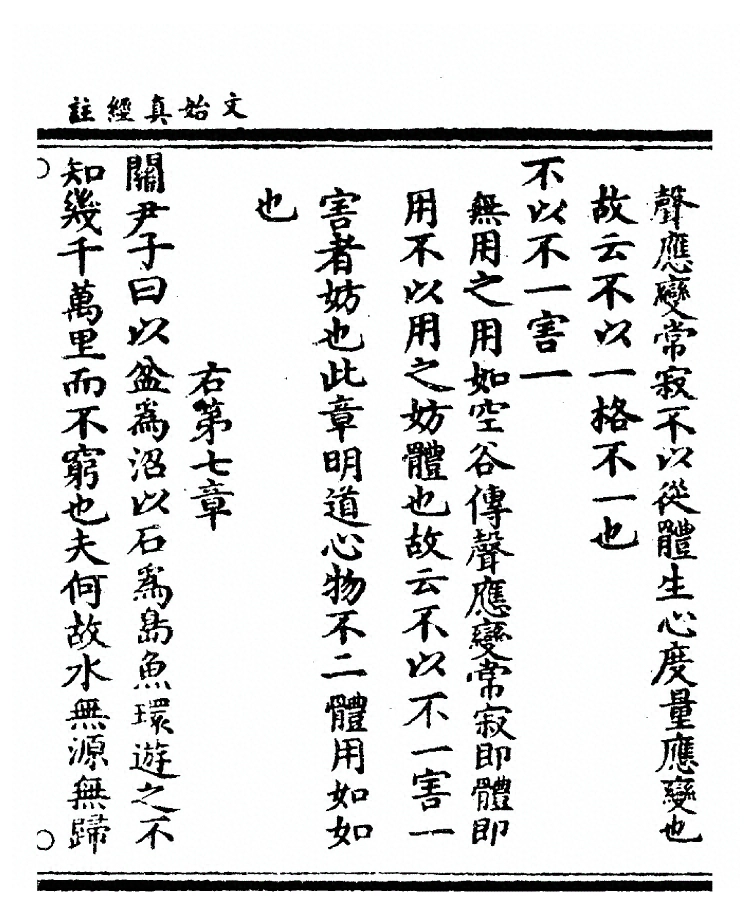 文始真經註
聲應變常寂不以從體生心度量應變也
故云不以一格不一也
不以不一害一
無用之用如空谷傳聲應變常寂即體即
用不以用之妨體也故云不以不一害一
害者妨也此章明道心物不二體用如如
也
右第七章
關尹子曰以盆為沼以石為島魚環遊之不
知幾千萬里而不窮也夫何故水無源無歸